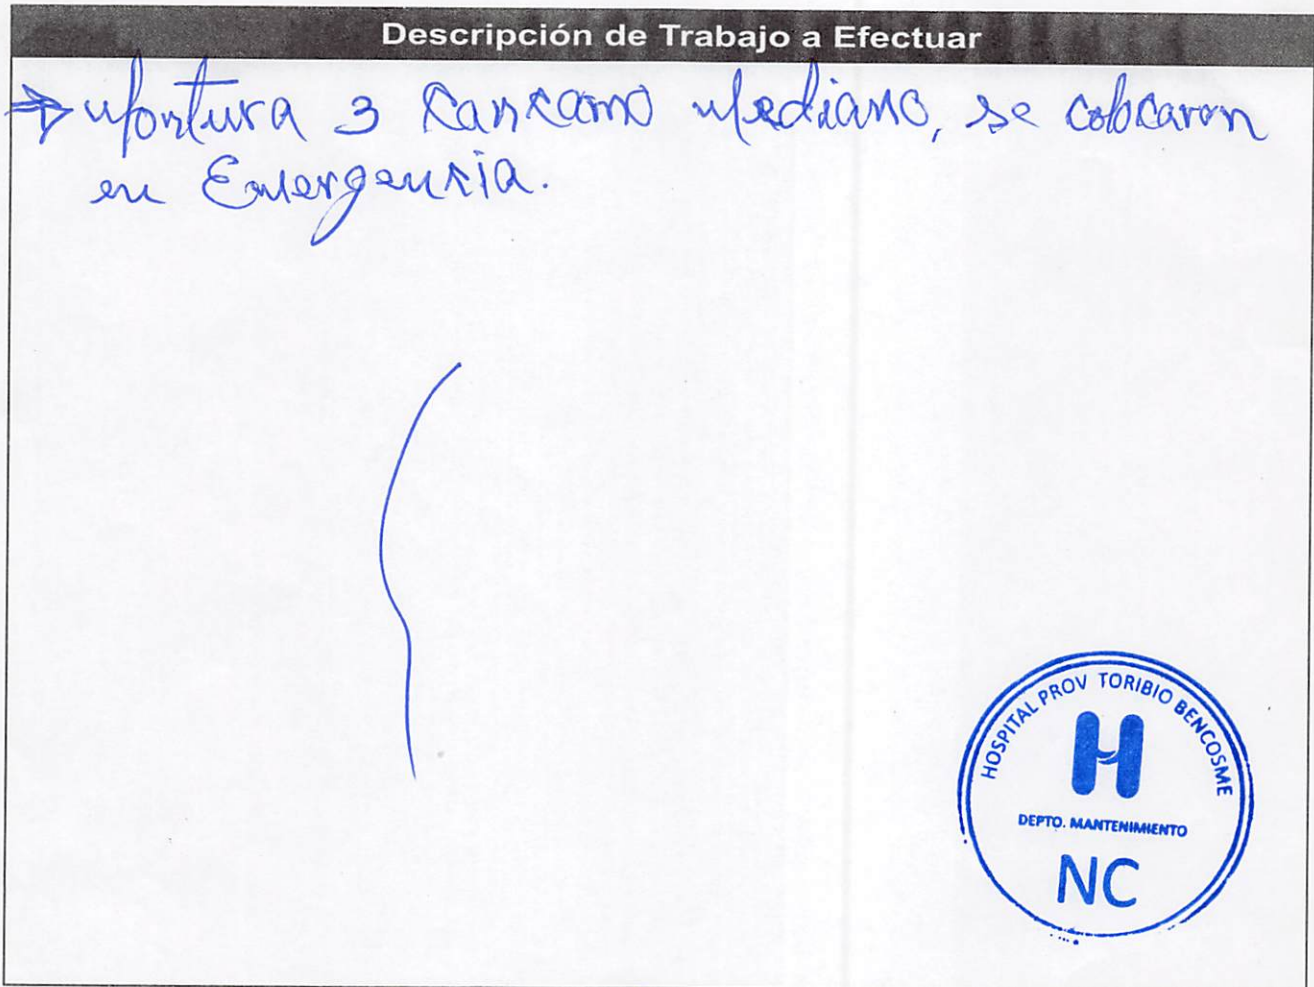 Descripción de Trabajo a Efectuar
⇒ Montura 3 Cancamo Mediano, se colocaron
en Emergencia.
HOSPITAL PROV TORIBIO BENCOSME
H
DEPTO. MANTENIMIENTO
NC